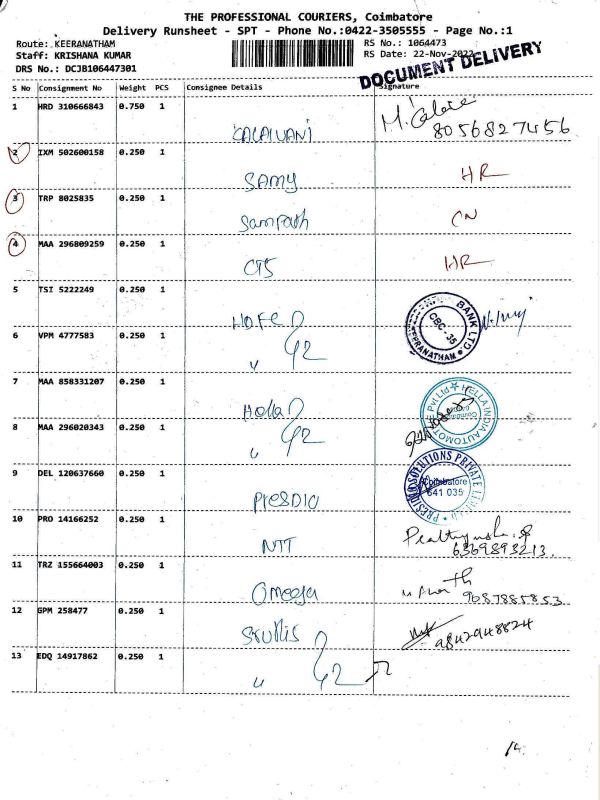 THE PROFESSIONAL COURIERS, Coimbatore
Delivery Runsheet - SPT - Phone No.:0422-3505555 - Page No.:1
Route: KEERANATHAM RS No.: 1064473
Staff: KRISHANA KUMAR RS Date: 22-Nov-2022
DRS No.: DCJB106447301
DOCUMENT DELIVERY
S No Consignment No Weight PCS Consignee Details Signature
1 HRD 310666843 0.750 1
CALAIVANI 8056827456
2 IXM 502600158 0.250 1
SAMY HR
3 TRP 8025835 0.250 1
Sampath CN
4 MAA 296809259 0.250 1
CTS HR
5 TSI 5222249 0.250 1
HDFC
BANK LTD
CBC-35
KEERANATHAM
6 VPM 4777583 0.250 1
" 2
7 MAA 858331207 0.250 1
Hella
HELLA INDIA AUTOMOTIVE PVT LTD
8 MAA 296020343 0.250 1
" 2
9 DEL 120637660 0.250 1
PRESDIO
PRESIDIO SOLUTIONS PRIVATE LIMITED
Coimbatore
641 035
10 PRO 14166252 0.250 1
NTT 6369893213
11 TRZ 155664003 0.250 1
Omega 9087885853
12 GPM 258477 0.250 1
Skullis 9842948824
13 EDQ 14917862 0.250 1
" 2